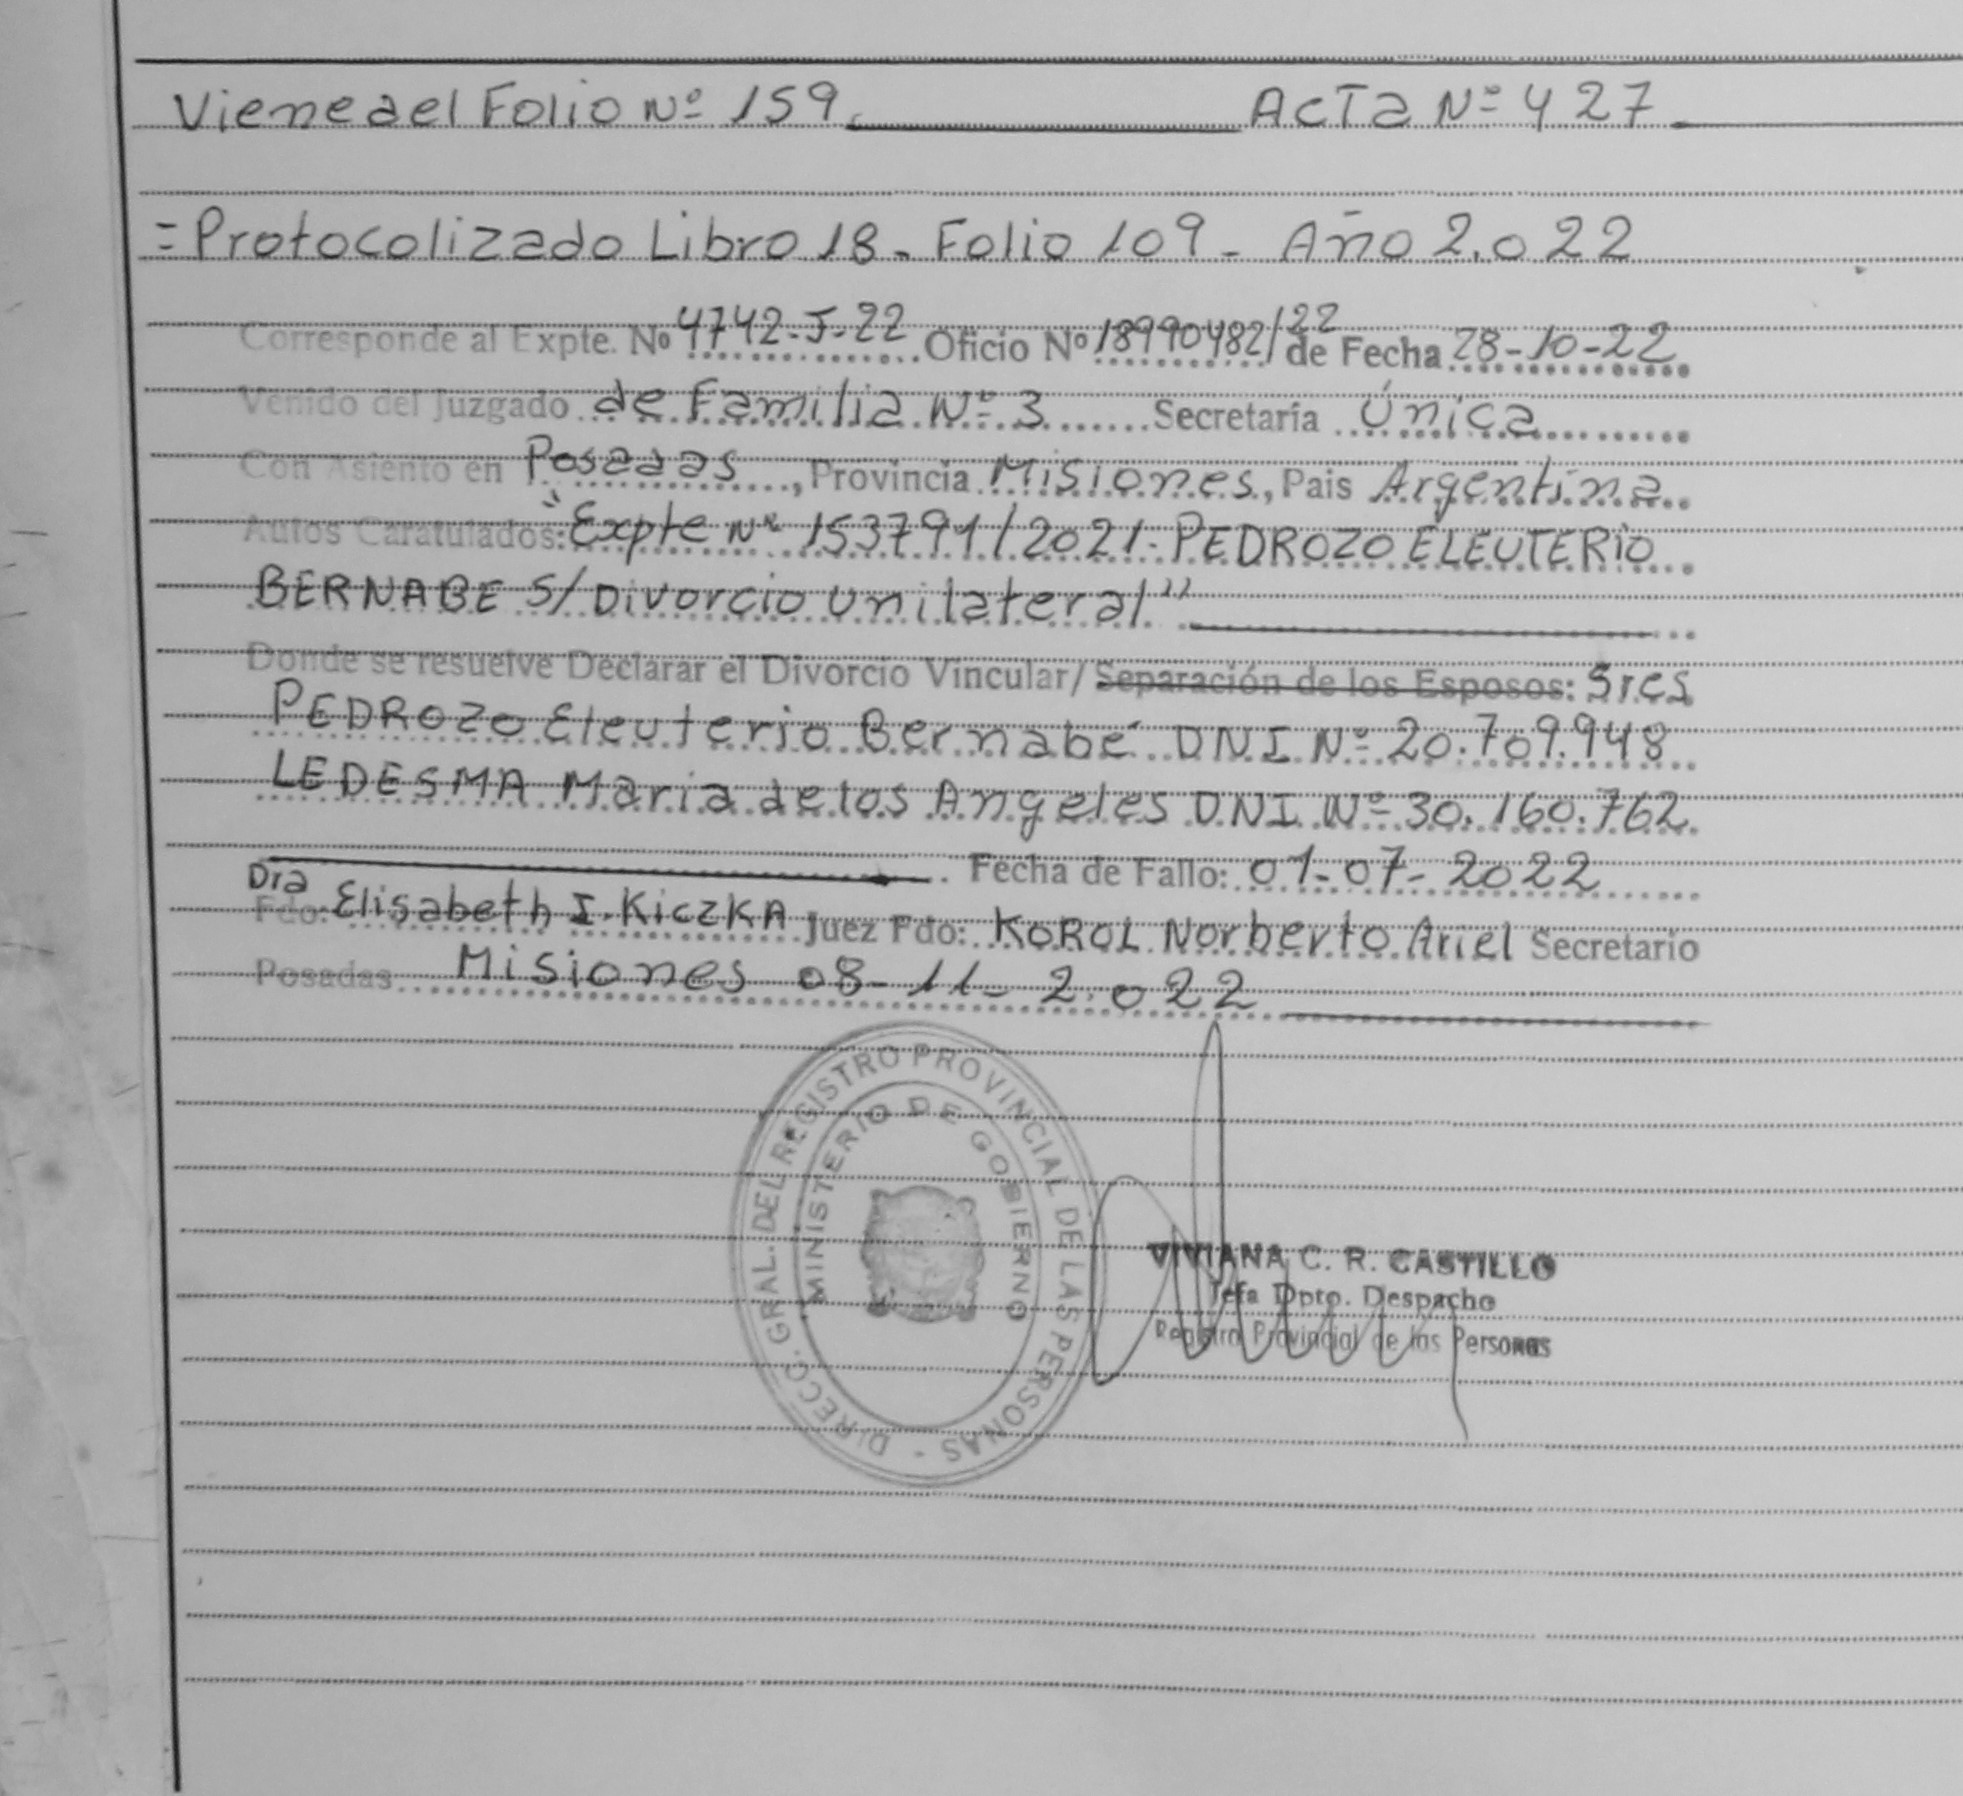 Viene del Folio Nº 159. ActA Nº 427
=Protocolizado Libro 18. Folio 109 - Año 2.022
Corresponde al Expte. Nº 4742-J-22 Oficio Nº 18990482/22 de Fecha 28-10-22
Venido del Juzgado de Familia Nº 3 Secretaría Única
Con Asiento en Posadas, Provincia Misiones, Pais Argentina
Autos Caratulados: "Expte Nº 153791/2021. PEDROZO ELEUTERIO
BERNABE S/ Divorcio Unilateral"
Donde se resuelve Declarar el Divorcio Vincular/ Separación de los Esposos: Sres
PEDROZO Eleuterio Bernabé DNI Nº 20.709.948
LEDESMA Maria de los Angeles DNI Nº 30.160.762
Fecha de Fallo: 01-07-2022
Fdo: Dra Elisabeth I. KiczKA Juez Fdo: KOROL Norberto Ariel Secretario
Posadas Misiones 08-11-2.022
DIRECC. GRAL. DEL REGISTRO PROVINCIAL DE LAS PERSONAS -
MINISTERIO DE GOBIERNO
VIVIANA C. R. CASTILLO
Jefa Dpto. Despacho
Registro Provincial de las Personas